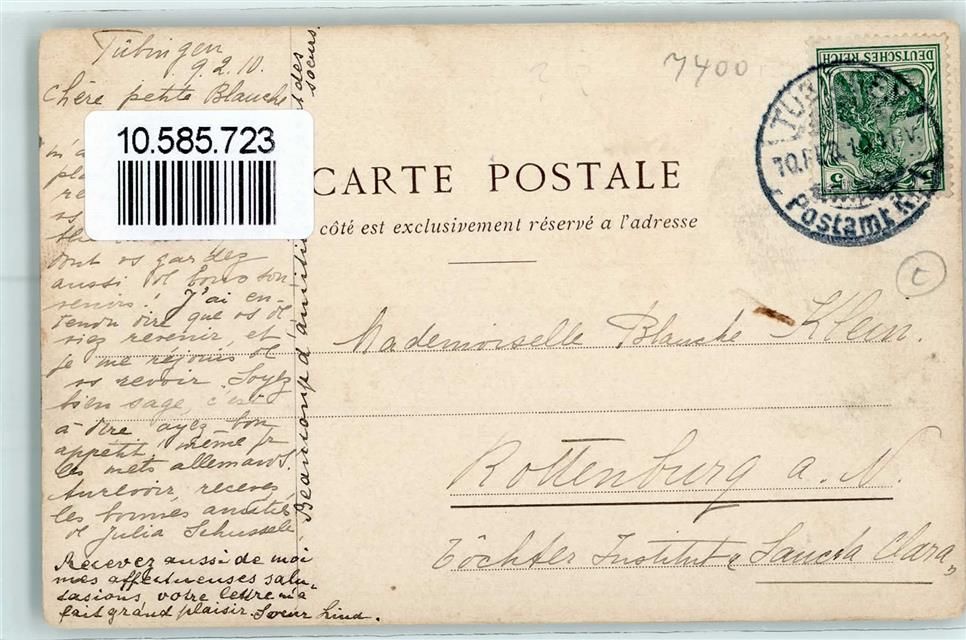 Tübingen
9.2.10.
Chère petite Blanche
10.585.723
dont vs gardez
aussi de bons sou-
venirs! J'ai en-
tendu dire que vs de-
viez revenir, et
je me réjouis de
vs revoir. Soyez
bien sage, c'est
à dire ayez bon
appétit, même pr
les mets allemands.
Aurevoir, recevez
les bonnes amitiés
de Julia Schussele
Recevez aussi de moi
mes affectueuses salu-
tations, votre lettre m'a
fait grand plaisir. Soeur Lina.
Beaucoup d'amitiés des
soeurs
7400
DEUTSCHES REICH
5
TÜBINGEN
10.FEB.
Postamt
CARTE POSTALE
côté est exclusivement réservé a l'adresse
Mademoiselle Blanche Klein.
Rottenburg a. N.
Töchter Institut „Sancta Clara"